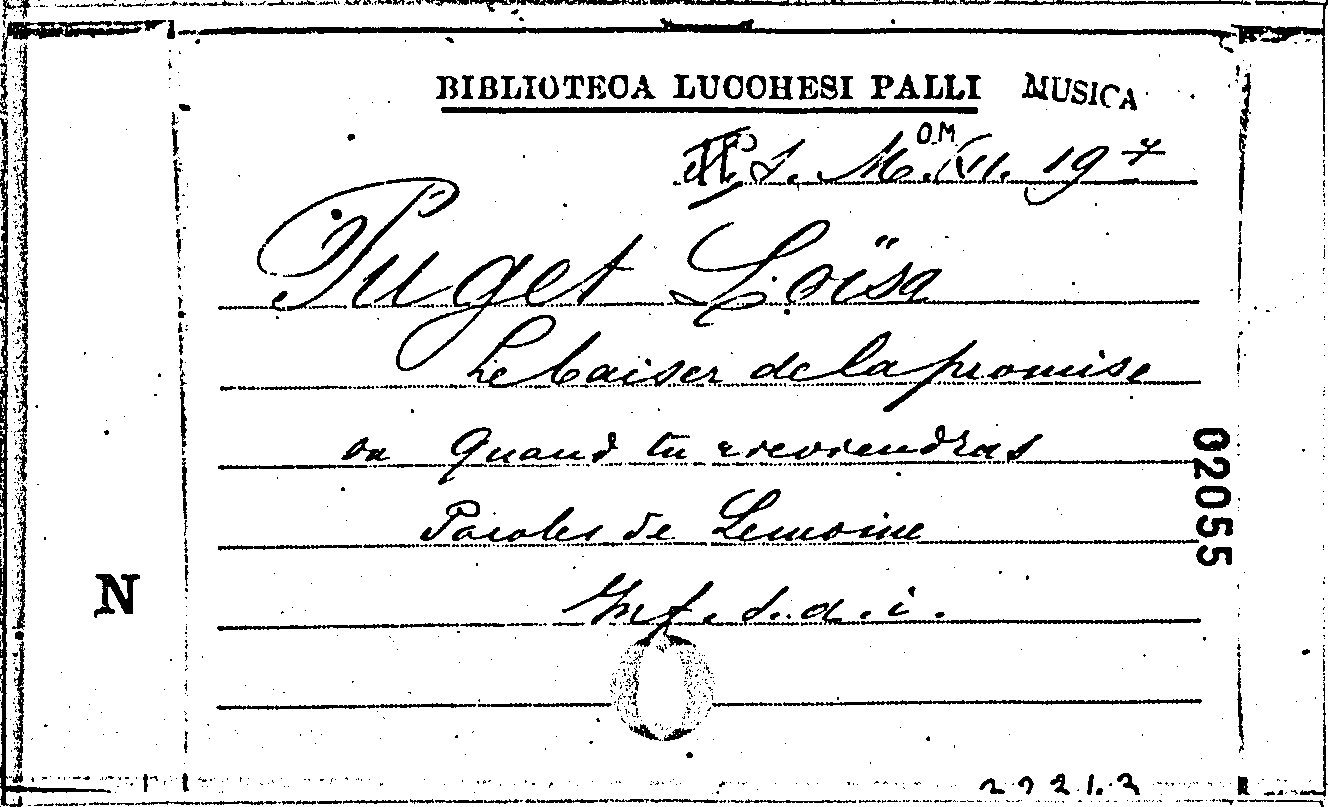 BIBLIOTECA LUCCHESI PALLI MUSICA
O.M
S. M. XII. 19 7
Puget Loïsa
Le baiser de la promise
ou Quand tu reviendras
Paroles de Lemoine
In f. s. d. i.
02055
N